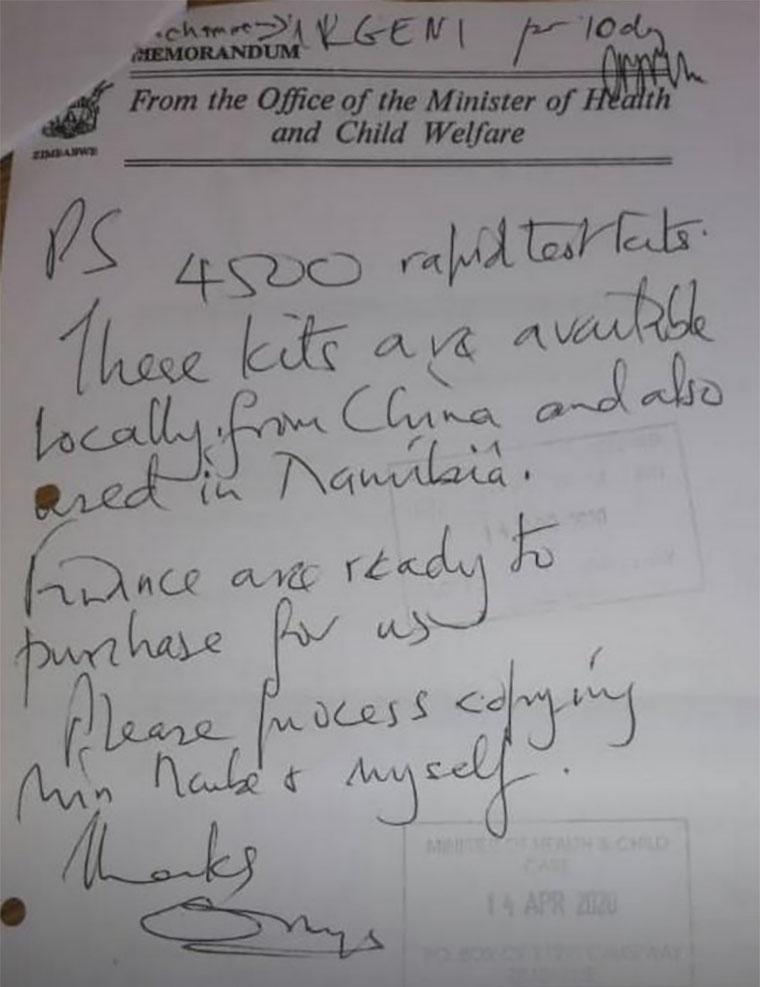 URGENT
MEMORANDUM
From the Office of the Minister of Health
and Child Welfare
ZIMBABWE
PS 4500 rapid test kits.
These kits are available
locally, from China and also
used in Namibia.
Finance are ready to
purchase for us
Please process copying
Min Ncube & myself.
Thanks
MINISTER OF HEALTH & CHILD
CARE
14 APR 2020